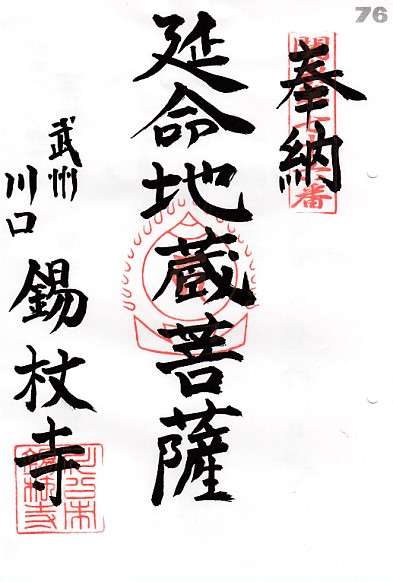 76
奉納
延命地蔵菩薩
武州
川口
錫杖寺